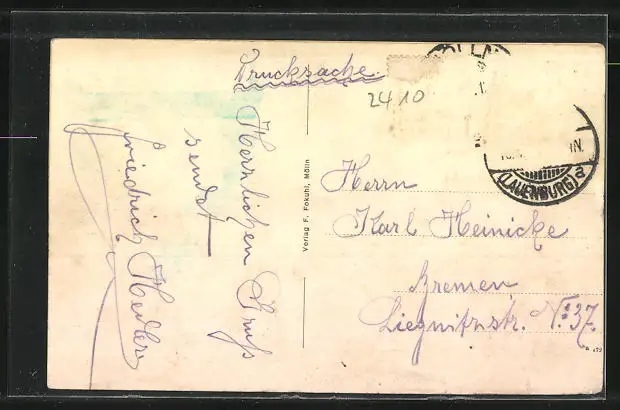 Drucksache.
2410
Herzlichen Gruß
sendet
Friedrich
Verlag F. Fokuhl, Mölln
Herrn
Karl Heinicke
Bremen
Liegnitzstr. No: 37.
(LAUENBURG) a